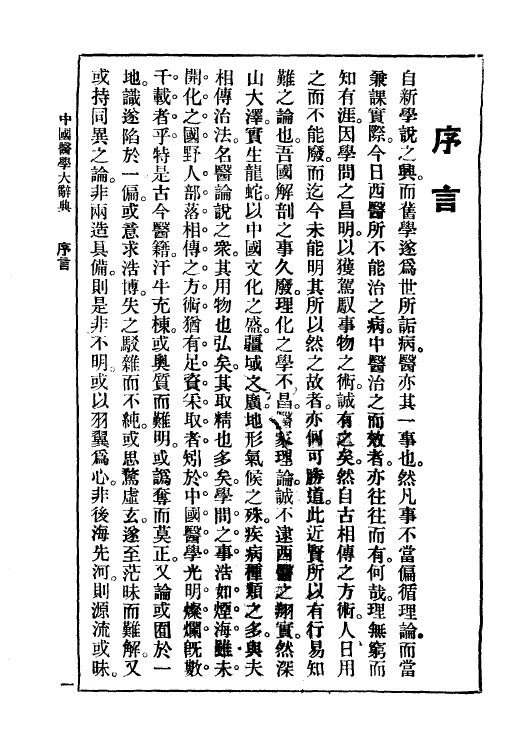 序言
自新學說之興。而舊學遂爲世所詬病。醫亦其一事也。然凡事不當偏循理論。而當
兼課實際。今日西醫所不能治之病。中醫治之而效者。亦往往而有。何哉。理無窮而
知有涯。因學問之昌明。以獲駕馭事物之術。誠有之矣。然自古相傳之方術。人日用
之而不能廢。而迄今未能明其所以然之故者。亦何可勝道。此近賢所以有行易知
難之論也。吾國解剖之事久廢。理化之學不昌。醫家理論。誠不逮西醫之翔實。然深
山大澤。實生龍蛇。以中國文化之盛。疆域之廣。地形氣候之殊。疾病種類之多。與夫
相傳治法。名醫論說之衆。其用物也弘矣。其取精也多矣。學問之事。浩如煙海。雖未
開化之國。野人部落。相傳之方術。猶有足資采取者。矧於中國醫學。光明燦爛。旣數
千載者乎。特是古今醫籍。汗牛充棟。或奧質而難明。或譌奪而莫正。又論或囿於一
地。識遂陷於一偏。或意求浩博。失之駁雜而不純。或思騖虛玄。遂至茫昧而難解。又
或持同異之論。非兩造具備。則是非不明。或以羽翼爲心。非後海先河。則源流或昧。
中國醫學大辭典 序言
一